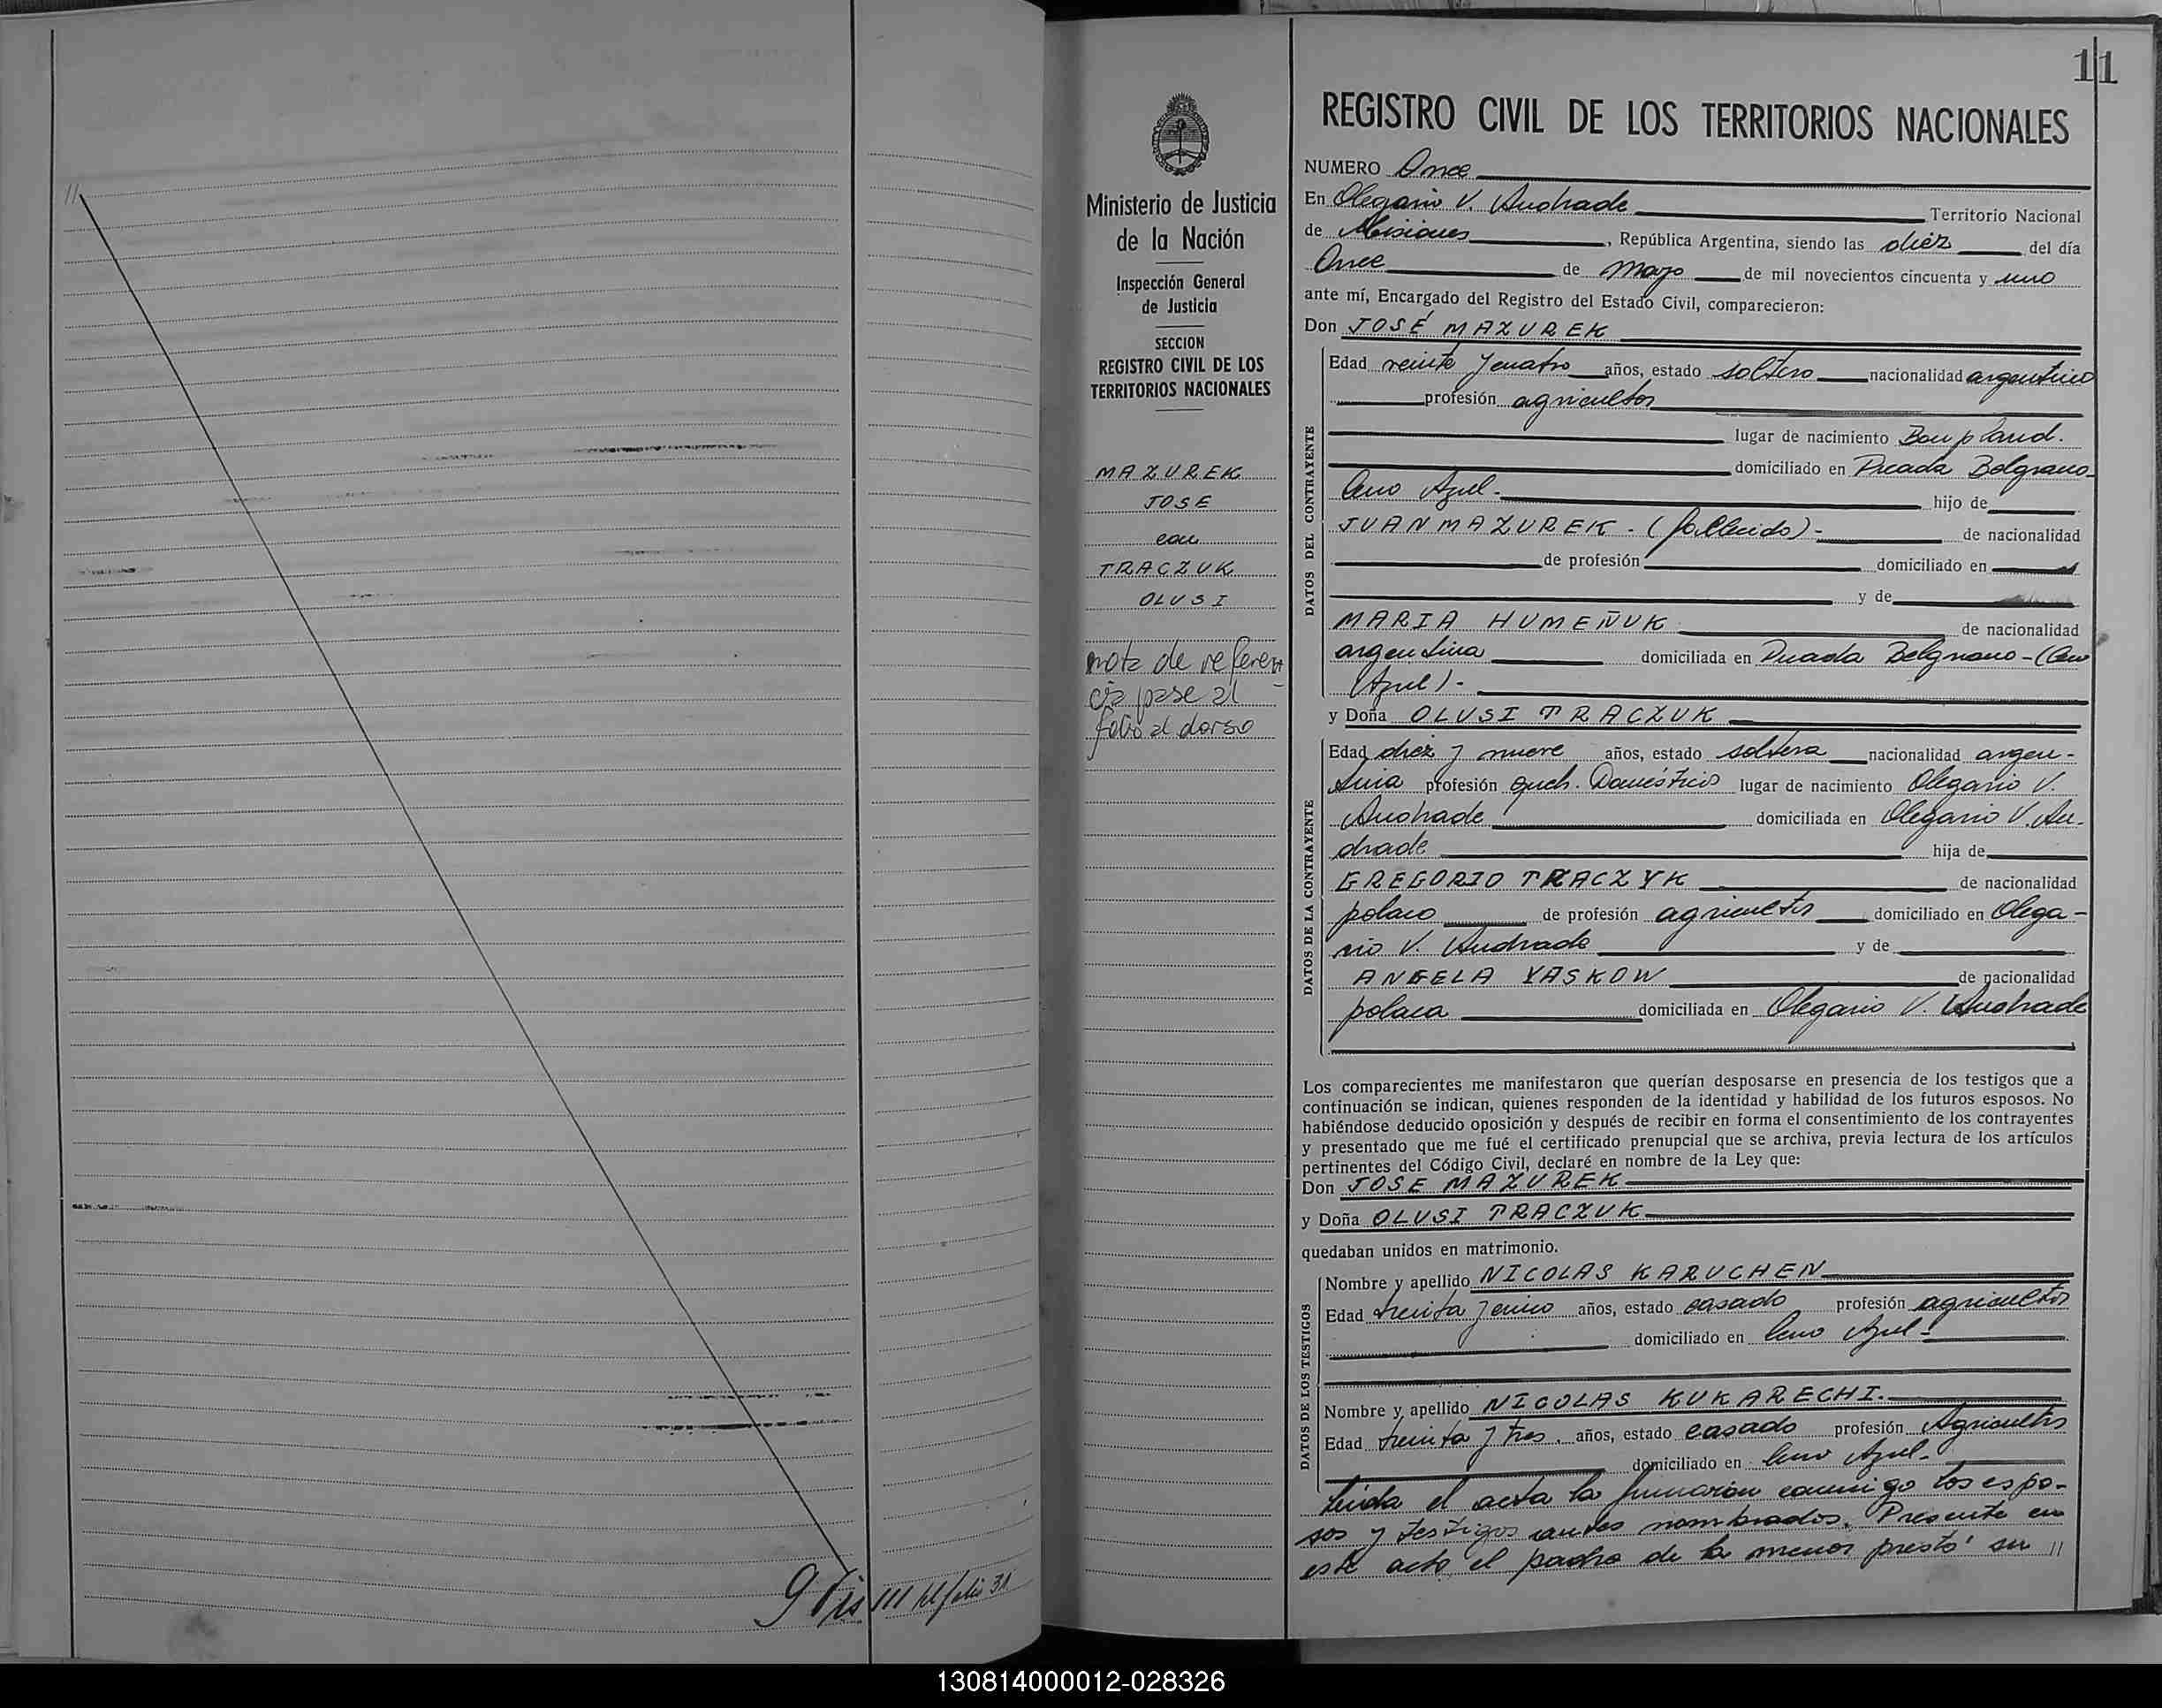 11
REGISTRO CIVIL DE LOS TERRITORIOS NACIONALES
NUMERO Once
En Olegario V. Andrade Territorio Nacional
de Misiones, República Argentina, siendo las diez del día
Once de Mayo de mil novecientos cincuenta y uno
ante mí, Encargado del Registro del Estado Civil, comparecieron:
Don JOSÉ MAZUREK
DATOS DEL CONTRAYENTE
Edad veinte y cuatro años, estado soltero nacionalidad argentino
profesión agricultor
lugar de nacimiento Bonpland.
domiciliado en Picada Belgrano-
Cerro Azul.- hijo de
JUAN MAZUREK.- (fallecido).- de nacionalidad
de profesión domiciliado en
y de
MARIA HUMEÑUK de nacionalidad
argentina domiciliada en Picada Belgrano-(Cerro
Azul).-
y Doña OLUSI TRACZUK
DATOS DE LA CONTRAYENTE
Edad diez y nueve años, estado soltera nacionalidad argen-
tina profesión queh. Domésticos lugar de nacimiento Olegario V.
Andrade domiciliada en Olegario V. An-
drade hija de
GREGORIO TRACZYK de nacionalidad
polaco de profesión agricultor domiciliado en Olega-
rio V. Andrade y de
ANGELA YASKOW de nacionalidad
polaca domiciliada en Olegario V. Andrade
Los comparecientes me manifestaron que querían desposarse en presencia de los testigos que a
continuación se indican, quienes responden de la identidad y habilidad de los futuros esposos. No
habiéndose deducido oposición y después de recibir en forma el consentimiento de los contrayentes
y presentado que me fué el certificado prenupcial que se archiva, previa lectura de los artículos
pertinentes del Código Civil, declaré en nombre de la Ley que:
Don JOSE MAZUREK
y Doña OLUSI TRACZUK
quedaban unidos en matrimonio.
DATOS DE LOS TESTIGOS
Nombre y apellido NICOLAS KARUCHEN
Edad treinta y cinco años, estado casado profesión agricultor
domiciliado en Cerro Azul.-
Nombre y apellido NICOLAS KUKARECHI.
Edad treinta y tres. años, estado casado profesión Agricultor
domiciliado en Cerro Azul.
Leída el acta la firmaron conmigo los espo-
sos y testigos antes nombrados. Presente en
este acto el padre de la menor prestó su //
Ministerio de Justicia
de la Nación
Inspección General
de Justicia
SECCION
REGISTRO CIVIL DE LOS
TERRITORIOS NACIONALES
MAZUREK
JOSE
con
TRACZUK
OLUSI
nota de referen
cia pase al
folio al dorso
//
/// del folio 31
130814000012-028326